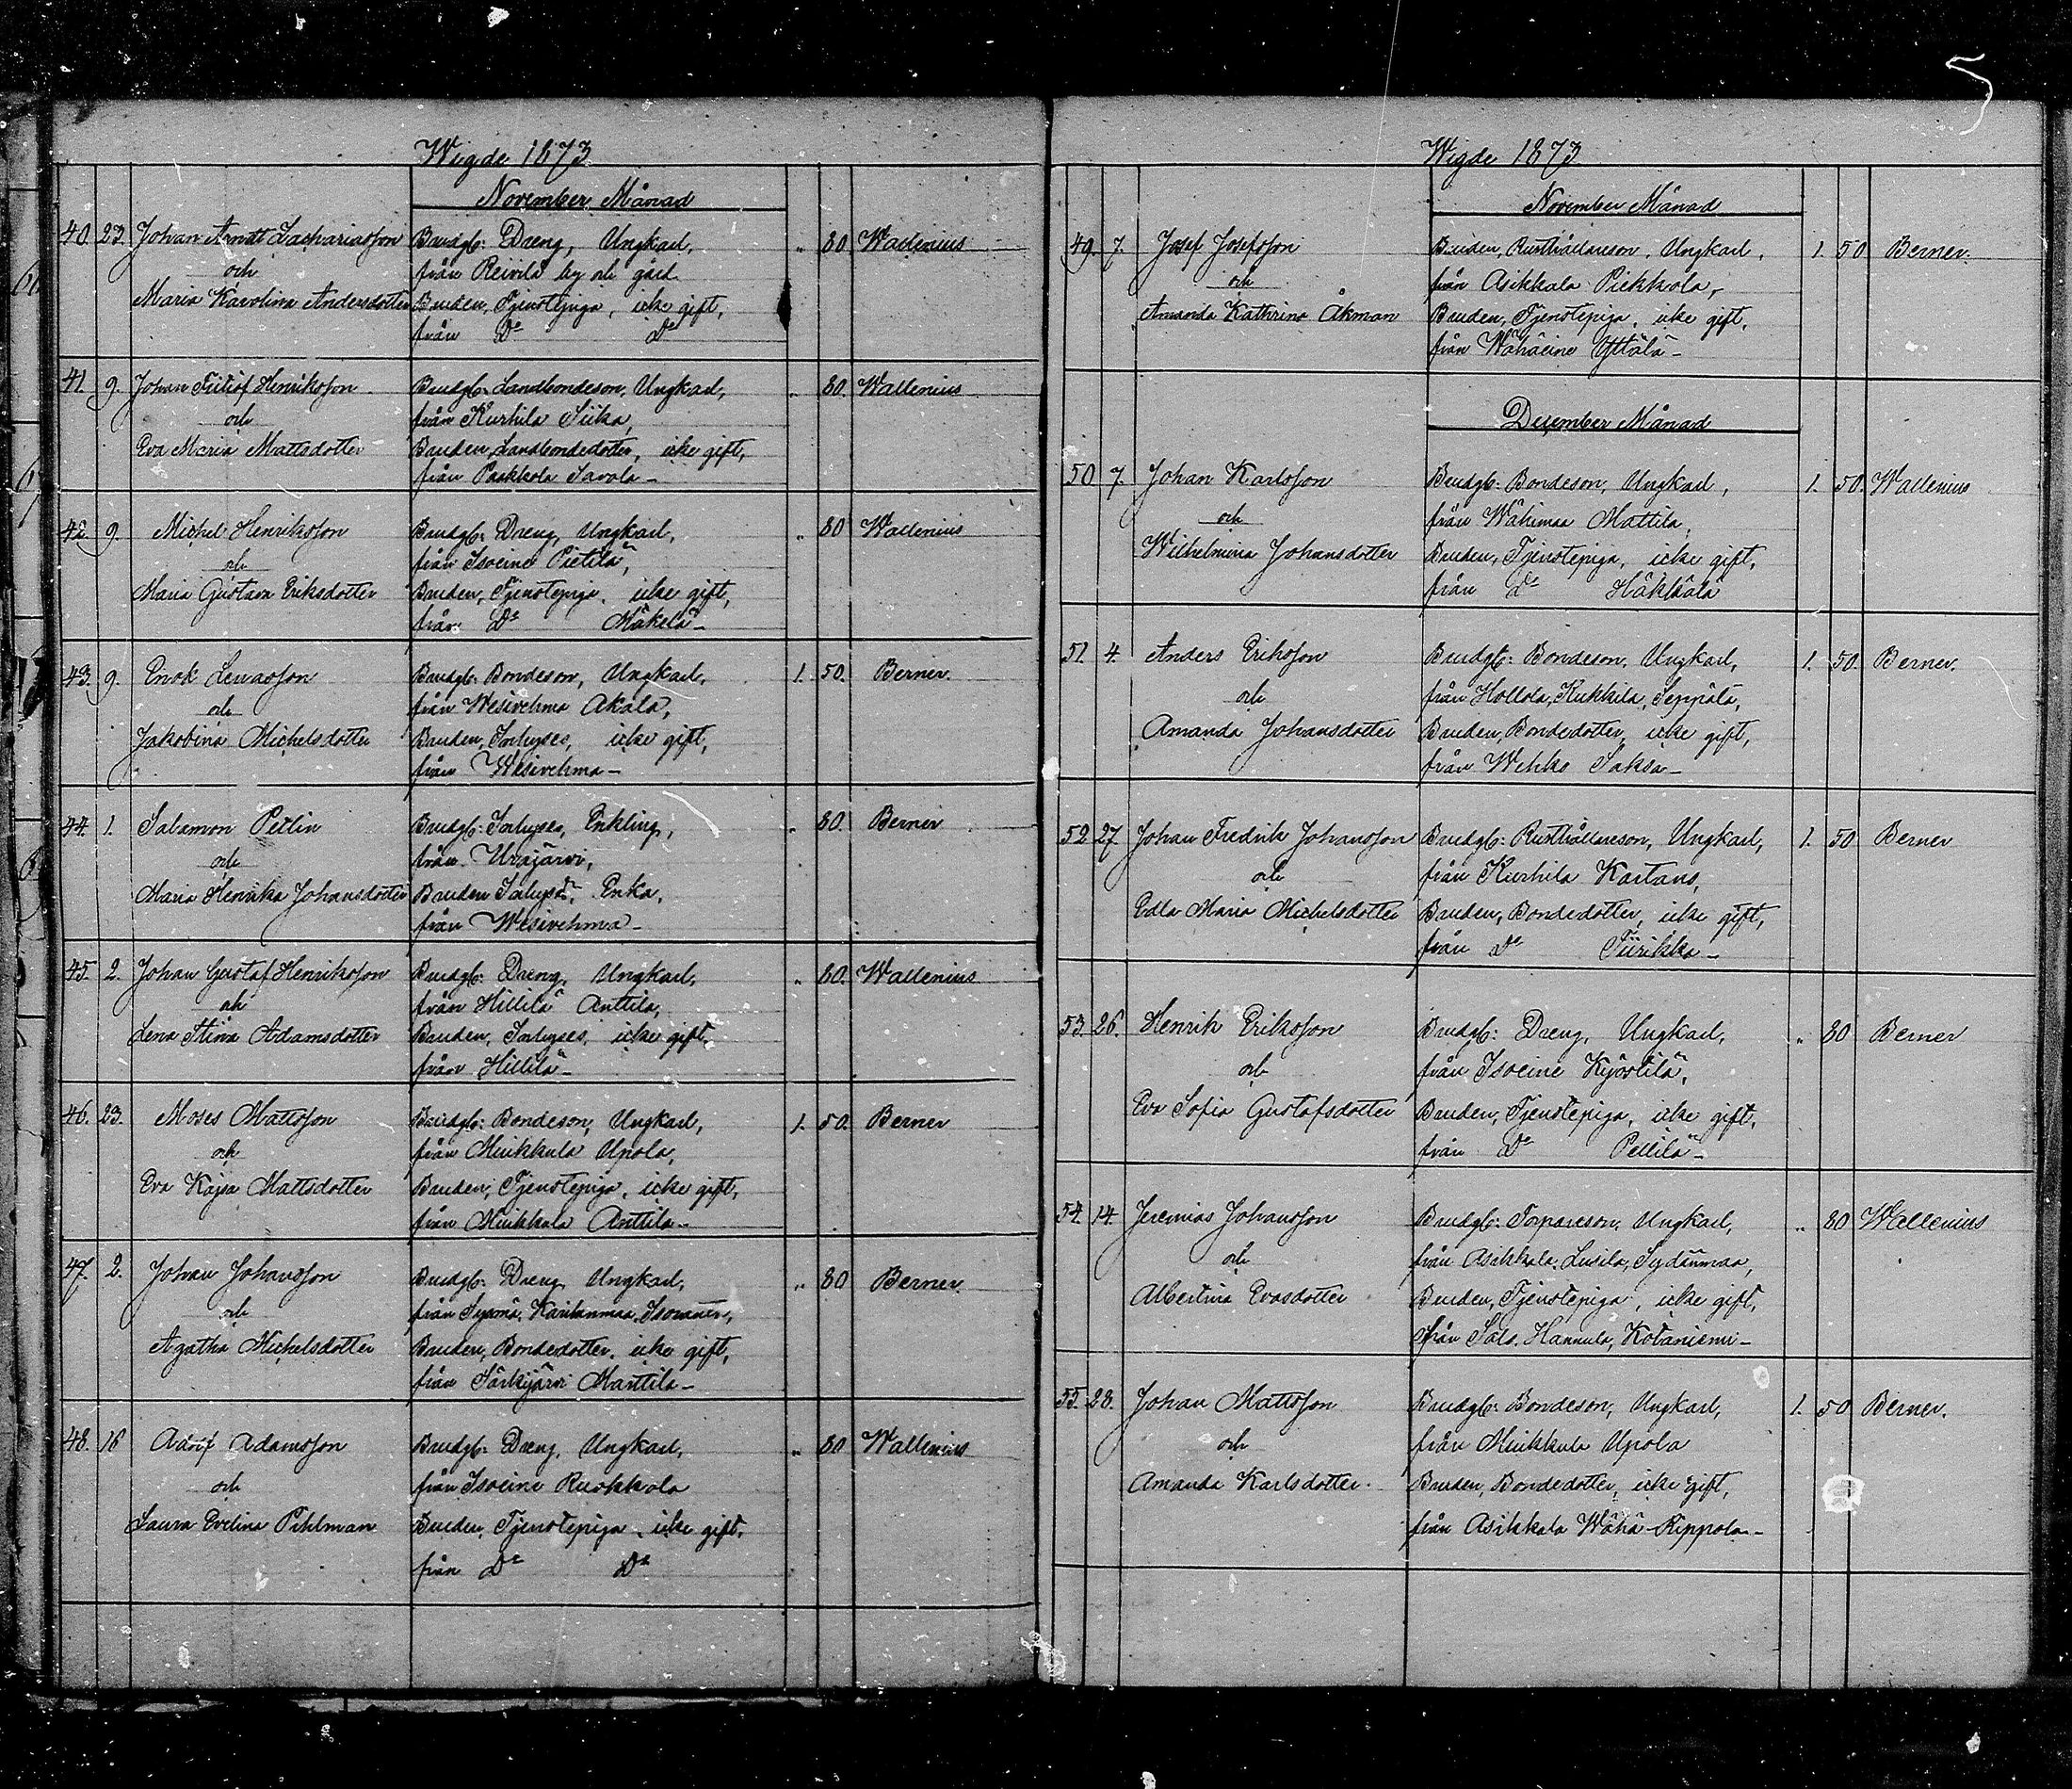 5
Wigde 1873
November Månad
40. 23. Johan Arndt Zachariasson Brudg: Dreng, Ungkarl, " 80 Wallenius
och från Reivilä by och gård
Maria Karolina Andersdotter Bruden, Tjenstepiga, icke gift,
från Do Do
41. 9. Johan Fritiof Henriksson Brudg: Landbondeson, Ungkarl, " 80. Wallenius
och från Kurhila Siika,
Eva Maria Mattsdotter Bruden, Landbondedotter, icke gift,
från Paakkola Savola -
42. 9. Michel Henriksson Brudg: Dreng, Ungkarl, " 80 Wallenius
och från Isoeine Pietilä,
Maria Gustava Eriksdotter Bruden, Tjenstepiga, icke gift,
från Do Mäkelä -
43. 9. Enok Henriksson Brudg: Bondeson, Ungkarl, 1. 50. Berner.
och från Wesivehma Akala,
Jakobina Michelsdotter Bruden, Inhyses, icke gift,
från Wesivehma -
44. 1. Salamon Pellin Brudg: Inhyses, Enkling, " 80. Berner
och från Urajärvi,
Maria Henrika Johansdotter Bruden Inhyses, Enka,
från Wesivehma -
45. 2. Johan Gustaf Henriksson Brudg: Dreng, Ungkarl, " 80. Wallenius
och från Hillilä Anttila,
Lena Stina Adamsdotter Bruden, Inhyses, icke gift,
från Hillilä -
46. 23. Moses Mattsson Brudg: Bondeson, Ungkarl, 1. 50. Berner
och från Muikkula Upola,
Eva Kajsa Mattsdotter Bruden, Tjenstepiga, icke gift,
från Muikkula Anttila -
47. 2. Johan Johansson Brudg: Dreng, Ungkarl, " 80 Berner.
och från Sysmä,
Agatha Michelsdotter Bruden, Bondedotter, icke gift,
från Särkijärvi Manttila -
48. 16 Adolf Adamsson Brudg: Dreng, Ungkarl, " 80 Wallenius
och från Isoeine Ruokkola
Laura Evelina Pihlman Bruden, Tjenstepiga, icke gift,
från Do Do
Wigde 1873
November Månad
49. 7. Josef Josefsson Bruden, Rusthållareson, Ungkarl, 1. 50 Berner.
och från Asikkala Pickkola,
Amanda Kathrina Åkman Bruden, Tjenstepiga, icke gift,
från Wähäeine Yttälä -
December Månad
50 7. Johan Karlsson Brudg: Bondeson, Ungkarl, 1. 50. Wallenius
och från Wähimaa Mattila,
Wilhelmina Johansdotter Bruden, Tjenstepiga, icke gift,
från Do Häkkälä
51. 4. Anders Eriksson Brudg: Bondeson, Ungkarl, 1. 50. Berner.
och från Hollola, Kukkila, Seppälä,
Amanda Johansdotter Bruden, Bondedotter, icke gift,
från Wehks Saksa -
52 27. Johan Fredrik Johansson Brudg: Rusthållareson, Ungkarl, 1. 50 Berner
och från Kurhila Kartano,
Edla Maria Michelsdotter Bruden, Bondedotter, icke gift,
från Do Tiirikka -
53. 26. Henrik Eriksson Brudg: Dreng, Ungkarl, " 80 Berner
och från Isoeine Kyöstilä,
Eva Sofia Gustafsdotter Bruden, Tjenstepiga, icke gift,
från Do Pellilä -
54. 14. Jeremias Johansson Brudg: Torpareson, Ungkarl, " 80 Wallenius
och från Asikkala, Lusila, Sydänmaa,
Albertina Evasdotter Bruden, Tjenstepiga, icke gift,
från Hannula, Kotaniemi -
55. 28. Johan Mattsson Brudg: Bondeson, Ungkarl, 1. 50 Berner.
och från Muikkula Upola
Amanda Karlsdotter. Bruden, Bondedotter, icke gift,
från Asikkala Wähä-Rippola -